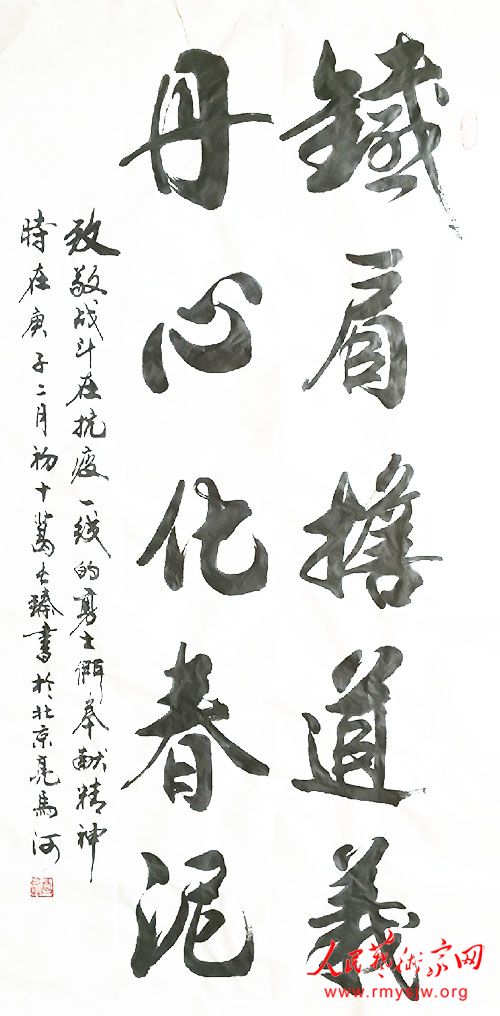 鐵肩擔道義
丹心化春泥
致敬战斗在抗疫一线的勇士們奉献精神
時在庚子二月初十萬大臻書於北京亮馬河
人民藝術家网
www.rmysjw.org